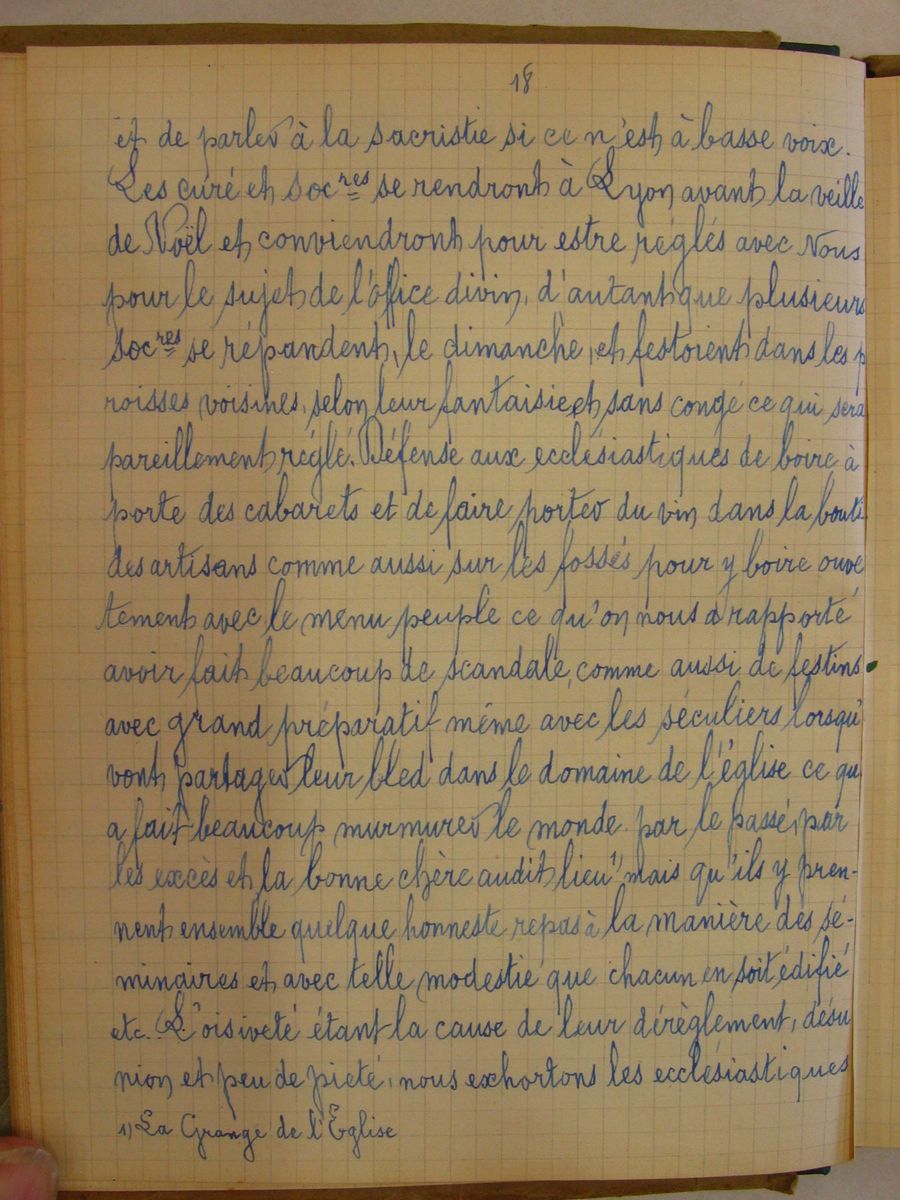 18
et de parler à la sacristie si ce n'est à basse voix.
Les curé et socres se rendront à Lyon avant la veille
de Noël et conviendront pour estre réglés avec Nous
pour le sujet de l'office divin, d'autant que plusieurs
socres se répandent, le dimanche, et festoient dans les p
roisses voisines, selon leur fantaisie et sans congé ce qui sera
pareillement réglé. Défense aux ecclésiastiques de boire à
porte des cabarets et de faire porter du vin dans la bouti
des artisans comme aussi sur les fossés pour y boire ouve
tement avec le menu peuple ce qu'on nous a rapporté
avoir fait beaucoup de scandale, comme aussi de festins
avec grand préparatif même avec les séculiers lorsqu'
vont partager leur bled dans le domaine de l'église ce qu
a fait beaucoup murmurer le monde par le passé, par
les excès et la bonne chère audit lieu 1) mais qu'ils y pren-
nent ensemble quelque honneste repas à la manière des sé-
minaires et avec telle modestie que chacun en soit édifié
etc. L'oisiveté étant la cause de leur dérèglement, désu
nion et peu de piété, nous exhortons les ecclésiastiques
1) La Grange de l'Eglise